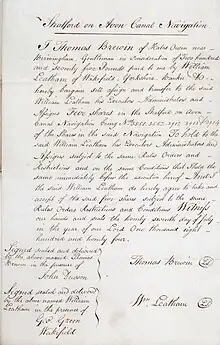 Stratford on Avon Canal Navigation
I Thomas Brewin of Hales Owen near
Birmingham Gentleman in Consideration of Two hundred
and Seventy five Pounds paid to me by William
Leatham of Wakefield, Yorkshire, Banker Do
hereby bargain sell assign and transfer to the said
William Leatham his Executors Administrators and
Assigns Five Shares in the Stratford on Avon
Canal Navigation being
of the Shares in the said Navigation To hold to the
said William Leatham his Executors Administrators and
Assigns subject to the same Rules Orders and
Restrictions and on the same Conditions that I held the
same immediately before the execution hereof And I
the said William Leatham do hereby agree to take and
accept of the said five shares subject to the same
Rules Orders Restrictions and Conditions Witness
our hands and seals the twenty seventh day of July
in the year of our Lord One thousand eight
hundred and forty four.
Signed sealed and delivered
by the above named Thomas
Brewin in the presence of
Thomas Brewin
John
Signed sealed and delivered
by the above named William
Leatham in the presence of
Wm Leatham
Geo Green
Wakefield